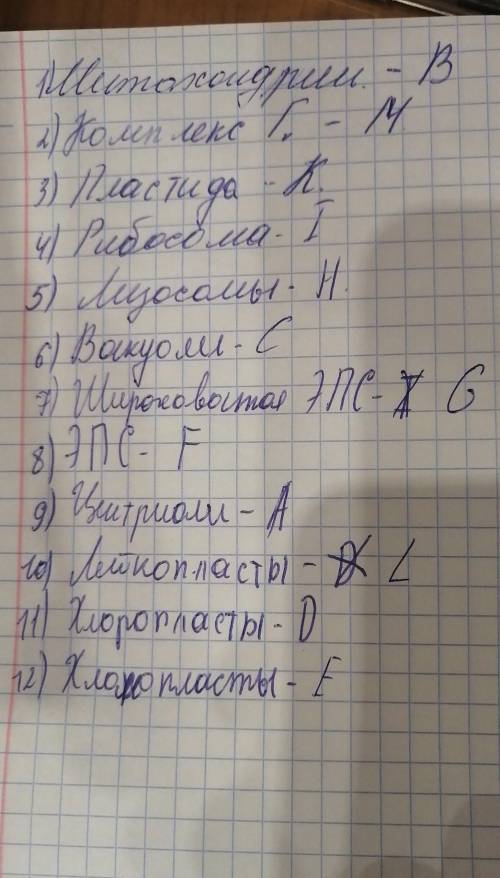 1) Митохондрии. - В
2) Комплекс Г. - М
3) Пластида - К.
4) Рибосома - I
5) Лизосомы - Н.
6) Вакуоли - С
7) Широховатая ЭПС - G
8) ЭПС - F
9) Центриоли - А
10) Лейкопласты - L
11) Хлоропласты - D
12) Хломопласты - E